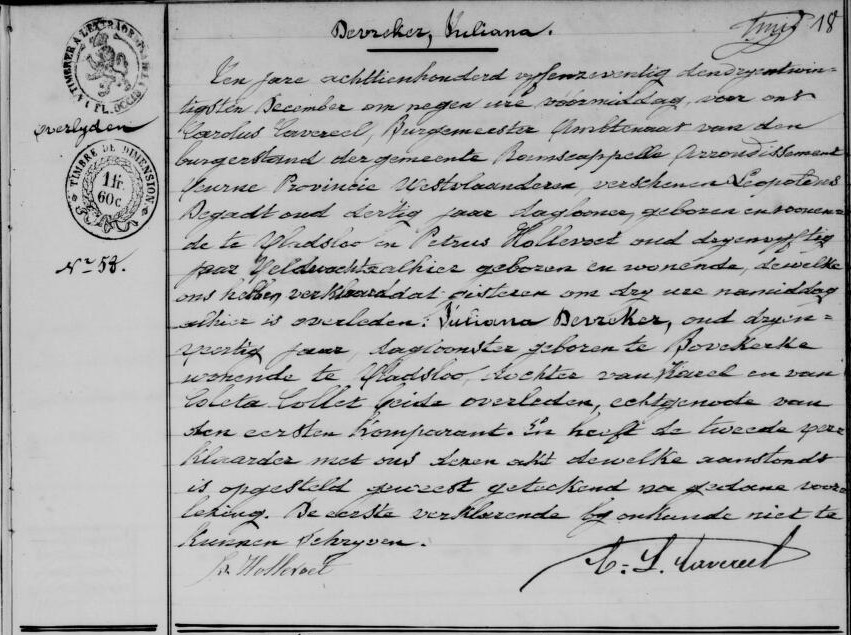 Devreker, Juliana.
18
TIMBRE DE DIMENSION
1 fr.
60 c.
overlyden
Nr 53.
Ten jare achttienhonderd vyfenzeventig den dryentwin=
tigsten December om negen ure vóórmiddag, voor ons
Carolus Tavereel, Burgemeester Ambtenaar van den
burgerstand der gemeente Ramscappelle Arrondissement
Veurne Provincie Westvlaanderen, verschenen Leopoldus
Degadt oud dertig jaar daglooner, geboren en wonen=
de te Vladsloo en Petrus Hollevoet oud dryenvyftig
jaar Veldwachter alhier geboren en wonende, dewelke
ons hebben verklaard dat gisteren om dry ure namiddag
alhier is overleden: Juliana Devreker, oud dryen=
veertig jaar, dagloonster geboren te Bovekerke
wonende te Vladsloo, dochter van Karel en van
Coleta Collet beide overleden, echtgenode van
den eersten komparant. En heeft de tweede ver=
klaarder met ons dezen akt dewelke aanstonds
is opgesteld geweest geteekend na gedane voor=
lezing. De eerste verklarende by onkunde niet te
kunnen schryven.
P. Hollevoet
C. L. Tavereel